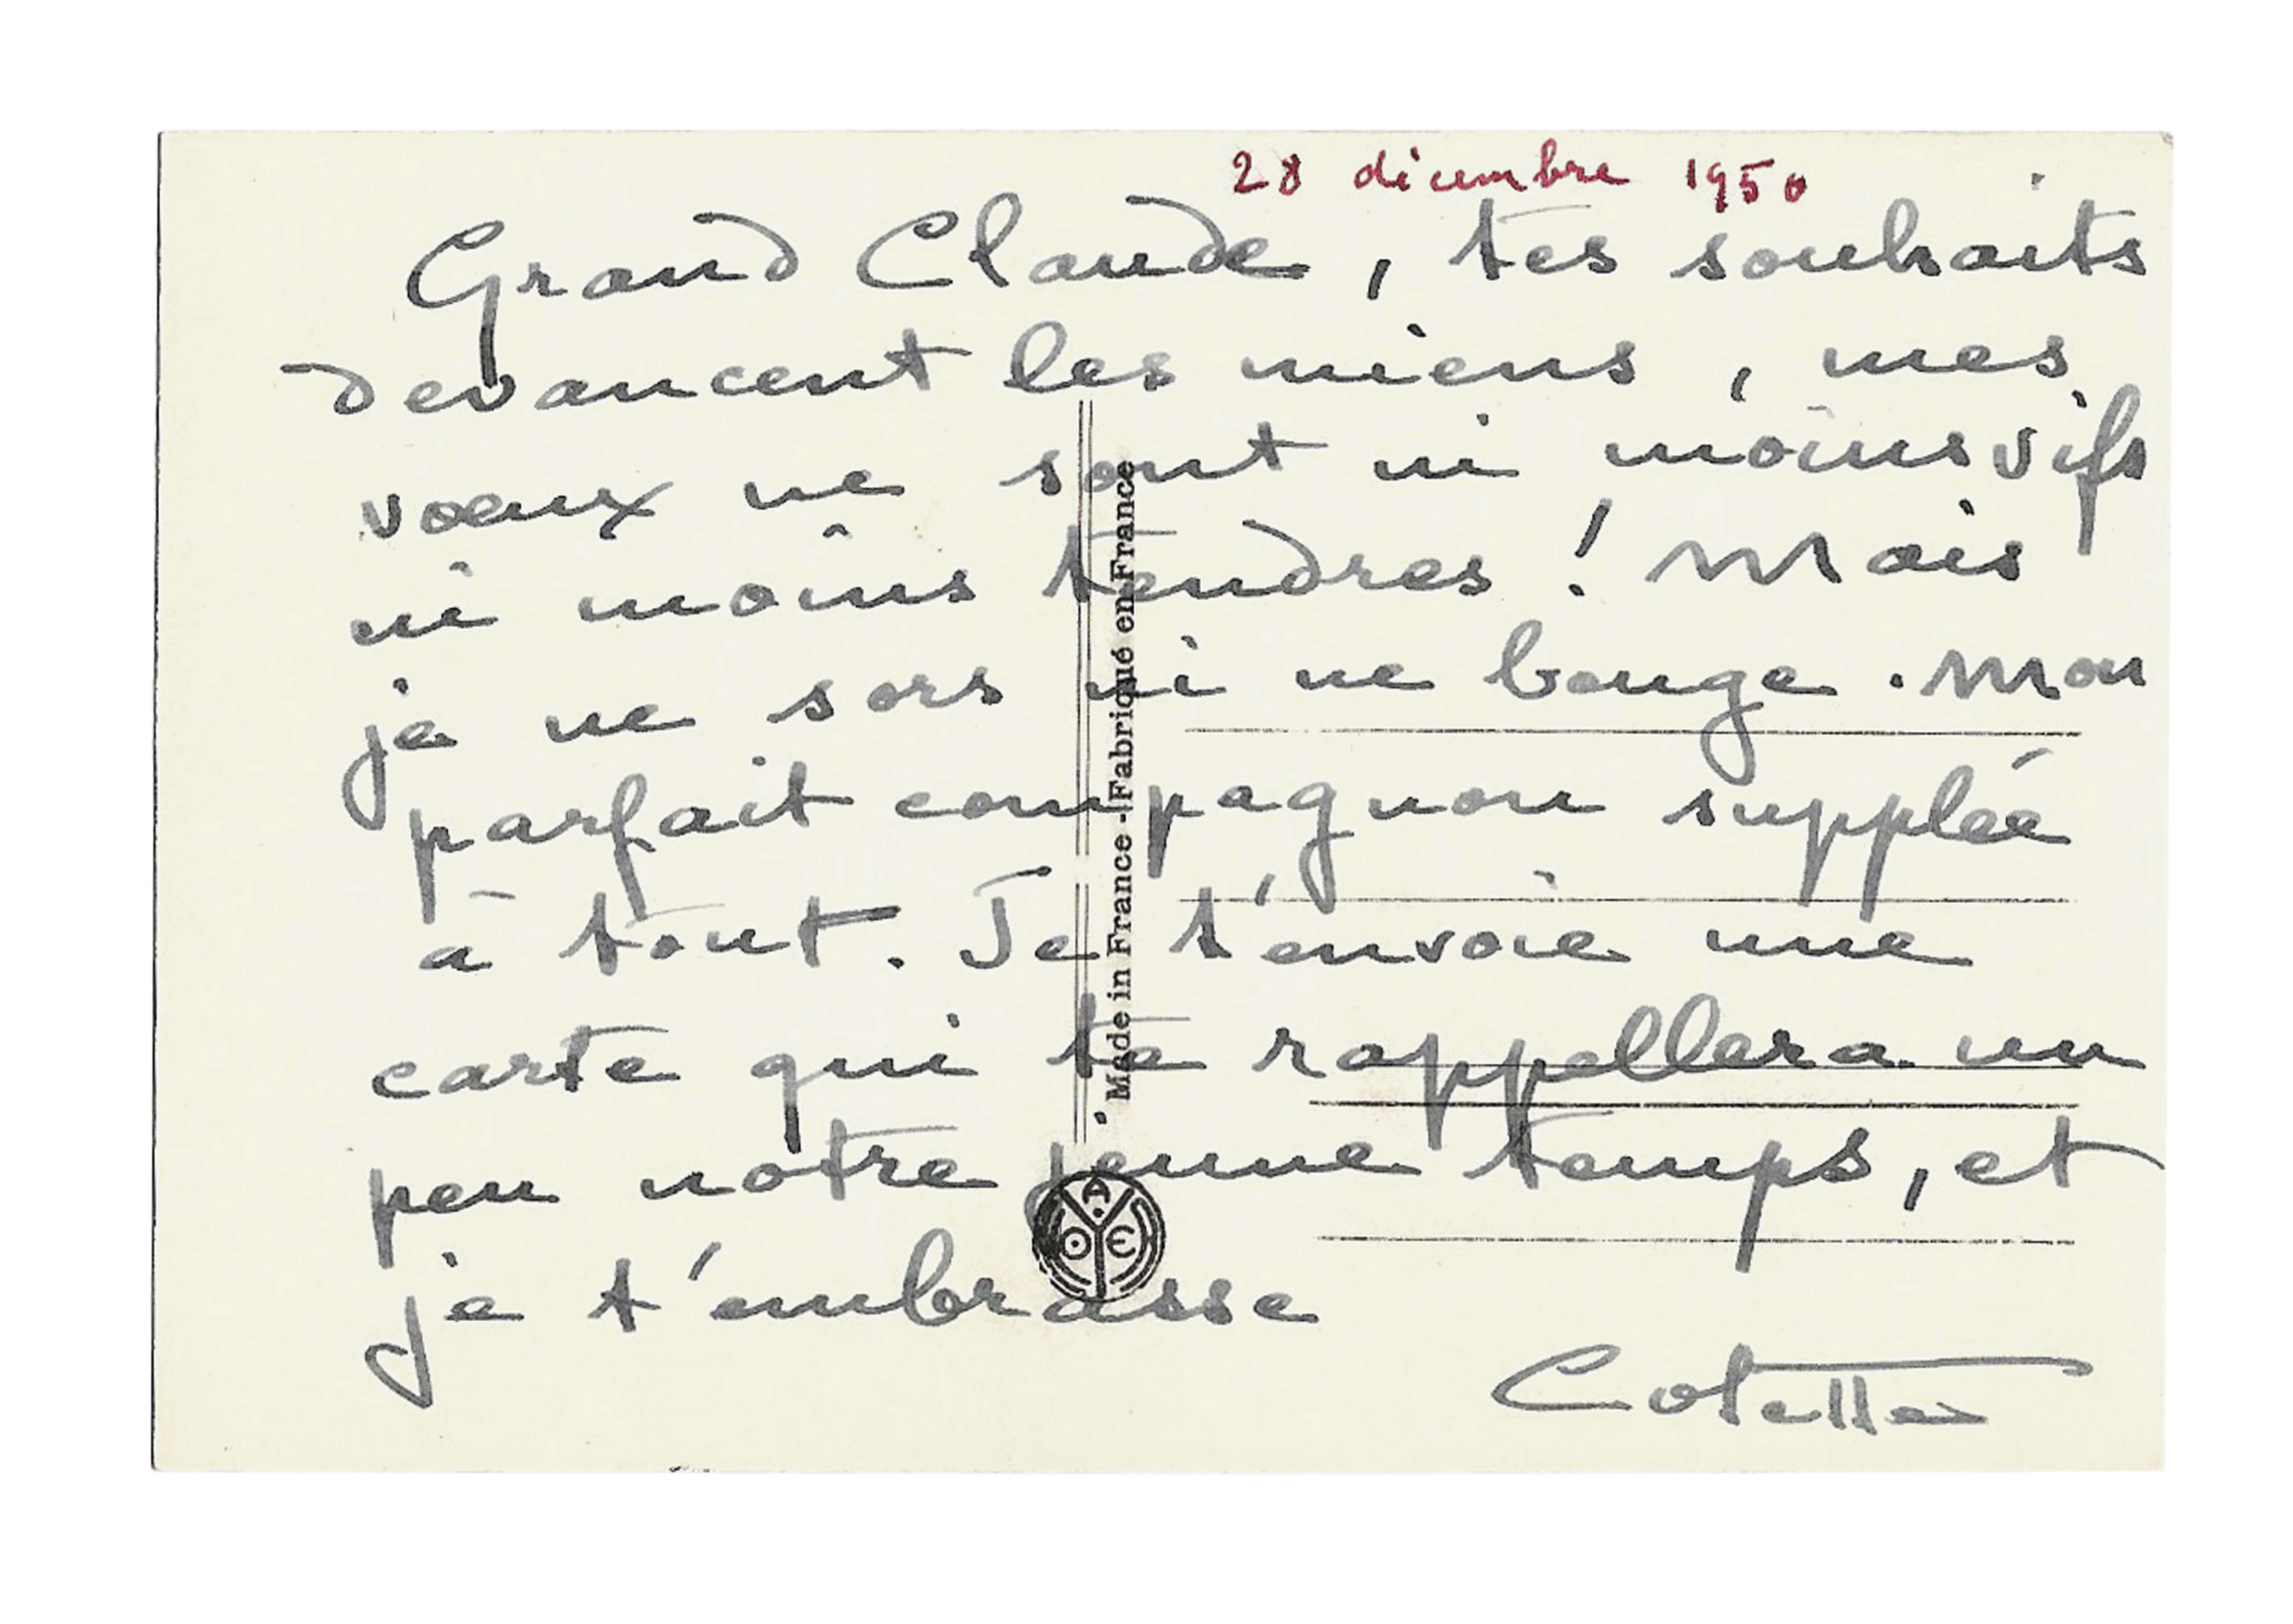 28 décembre 1950
Grand Claude, tes souhaits
devancent les miens, mes
voeux ne sont ni moins vifs
ni moins tendres ! Mais
je ne sors ni ne bouge. Mon
parfait compagnon supplée
à tout. Je t'envoie une
carte qui te rappellera un
peu notre jeune temps, et
je t'embrasse
Colette
Made in France - Fabriqué en France
A
O E